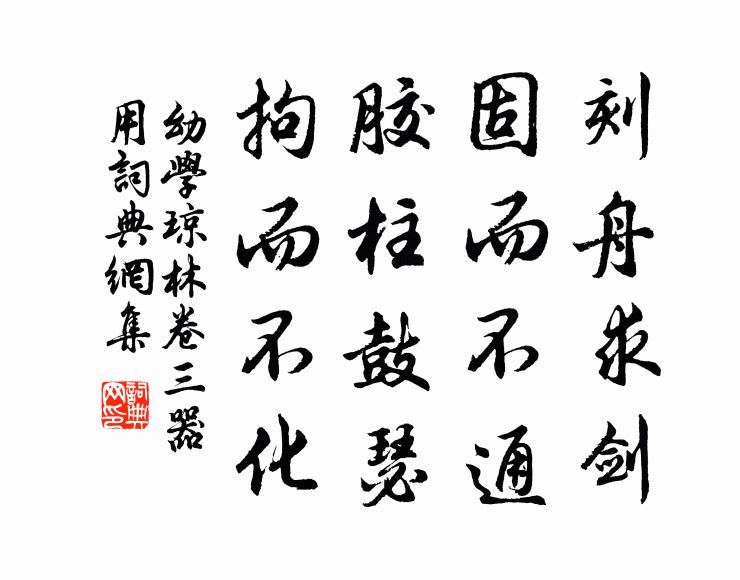 刻舟求剑
固而不通
胶柱鼓瑟
拘而不化
幼學琼林卷三器
用詞典網集
詞典网印